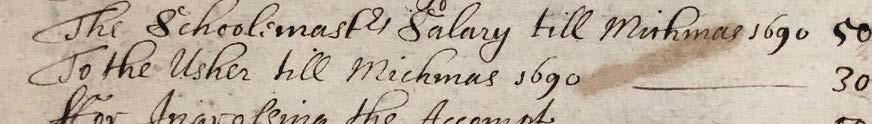 The Schoolemastrs Salary till Michmas 1690 50
To the Usher till Michmas 1690 30
ffor Ingrossing the Accompt